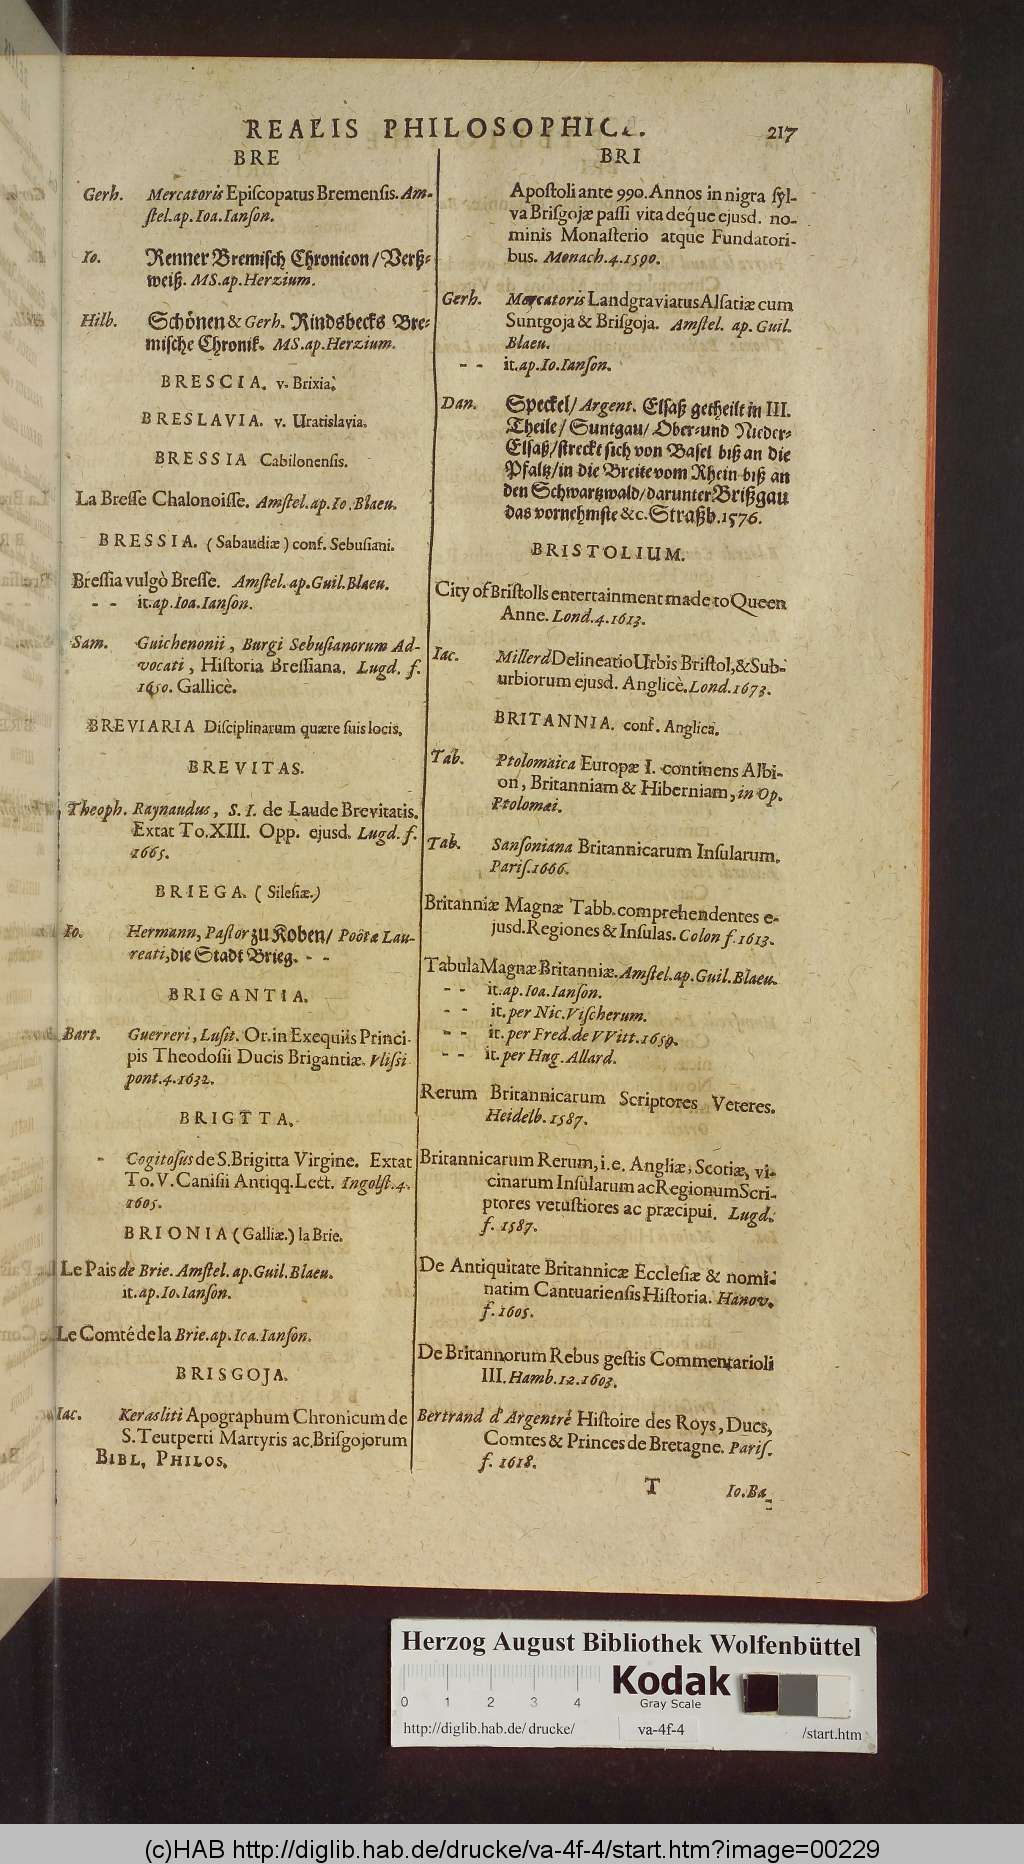 REALIS PHILOSOPHICÆ.
217
BRE
Gerh. Mercatoris Episcopatus Bremensis. Am-
stel. ap. Ioa. Ianson.
Io. Renner Bremisch Chronicon / Verß-
weiß. MS. ap. Herzium.
Hilb. Schönen & Gerh. Rindsbecks Bre-
mische Chronik. MS. ap. Herzium.
BRESCIA. v. Brixia.
BRESLAVIA. v. Uratislavia.
BRESSIA Cabilonensis.
La Bresse Chalonoisse. Amstel. ap. Io. Blaeu.
BRESSIA. (Sabaudiæ) conf. Sebusiani.
Bressia vulgò Bresse. Amstel. ap. Guil. Blaeu.
- - it. ap. Ioa. Ianson.
Sam. Guichenonii, Burgi Sebusianorum Ad-
vocati, Historia Bressiana. Lugd. f.
1650. Gallicè.
BREVIARIA Disciplinarum quære suis locis.
BREVITAS.
Theoph. Raynaudus, S. I. de Laude Brevitatis.
Extat To. XIII. Opp. ejusd. Lugd. f.
1665.
BRIEGA. (Silesiæ.)
Io. Hermann, Pastor zu Koben / Poëtæ Lau-
reati, die Stadt Brieg. - -
BRIGANTIA.
Bart. Guerreri, Lusit. Or. in Exequiis Princi-
pis Theodosii Ducis Brigantiæ. Vlissi
pont. 4. 1632.
BRIGTTA.
- Cogitosus de S. Brigitta Virgine. Extat
To. V. Canisii Antiqq. Lect. Ingolst. 4.
1605.
BRIONIA (Galliæ.) la Brie.
Le Pais de Brie. Amstel. ap. Guil. Blaeu.
it. ap. Io. Ianson.
Le Comté de la Brie. ap. Ica. Ianson.
BRISGOJA.
Iac. Kerasliti Apographum Chronicum de
S. Teutperti Martyris ac Brisgojorum
BIBL. PHILOS.
BRI
Apostoli ante 990. Annos in nigra syl-
va Brisgojæ passi vita deque ejusd. no-
minis Monasterio atque Fundatori-
bus. Monach. 4. 1590.
Gerh. Mercatoris Landgraviatus Alsatiæ cum
Suntgoja & Brisgoja. Amstel. ap. Guil.
Blaeu.
- - it. ap. Io. Ianson.
Dan. Speckel / Argent. Elsaß getheilt in III.
Theile / Suntgau / Ober- und Nieder-
Elsaß / streckt sich von Basel biß an die
Pfaltz / in die Breite vom Rhein biß an
den Schwartzwald / darunter Brißgau
das vornehmste &c. Straßb. 1576.
BRISTOLIUM.
City of Bristolls entertainment made to Queen
Anne. Lond. 4. 1613.
Iac. Millerd Delineatio Urbis Bristol, & Sub-
urbiorum ejusd. Anglicè. Lond. 1673.
BRITANNIA. conf. Anglica.
Tab. Ptolomaica Europæ I. continens Albi-
on, Britanniam & Hiberniam, in Op.
Ptolomæi.
Tab. Sansoniana Britannicarum Insularum.
Paris. 1666.
Britanniæ Magnæ Tabb. comprehendentes e-
jusd. Regiones & Insulas. Colon f. 1613.
Tabula Magnæ Britanniæ. Amstel. ap. Guil. Blaeu.
- - it. ap. Ioa. Ianson.
- - it. per Nic. Vischerum.
- - it. per Fred. de VVitt. 1659.
- - it. per Hug. Allard.
Rerum Britannicarum Scriptores Veteres.
Heidelb. 1587.
Britannicarum Rerum, i. e. Angliæ, Scotiæ, vi-
cinarum Insularum ac Regionum Scri-
ptores vetustiores ac præcipui. Lugd.
f. 1587.
De Antiquitate Britannicæ Ecclesiæ & nomi-
natim Cantuariensis Historia. Hanov.
f. 1605.
De Britannorum Rebus gestis Commentarioli
III. Hamb. 12. 1603.
Bertrand d'Argentré Histoire des Roys, Ducs,
Comtes & Princes de Bretagne. Paris.
f. 1618.
T
Io. Ba-
Herzog August Bibliothek Wolfenbüttel
0 1 2 3 4
Kodak
Gray Scale
http://diglib.hab.de/drucke/ va-4f-4 /start.htm
(c)HAB http://diglib.hab.de/drucke/va-4f-4/start.htm?image=00229